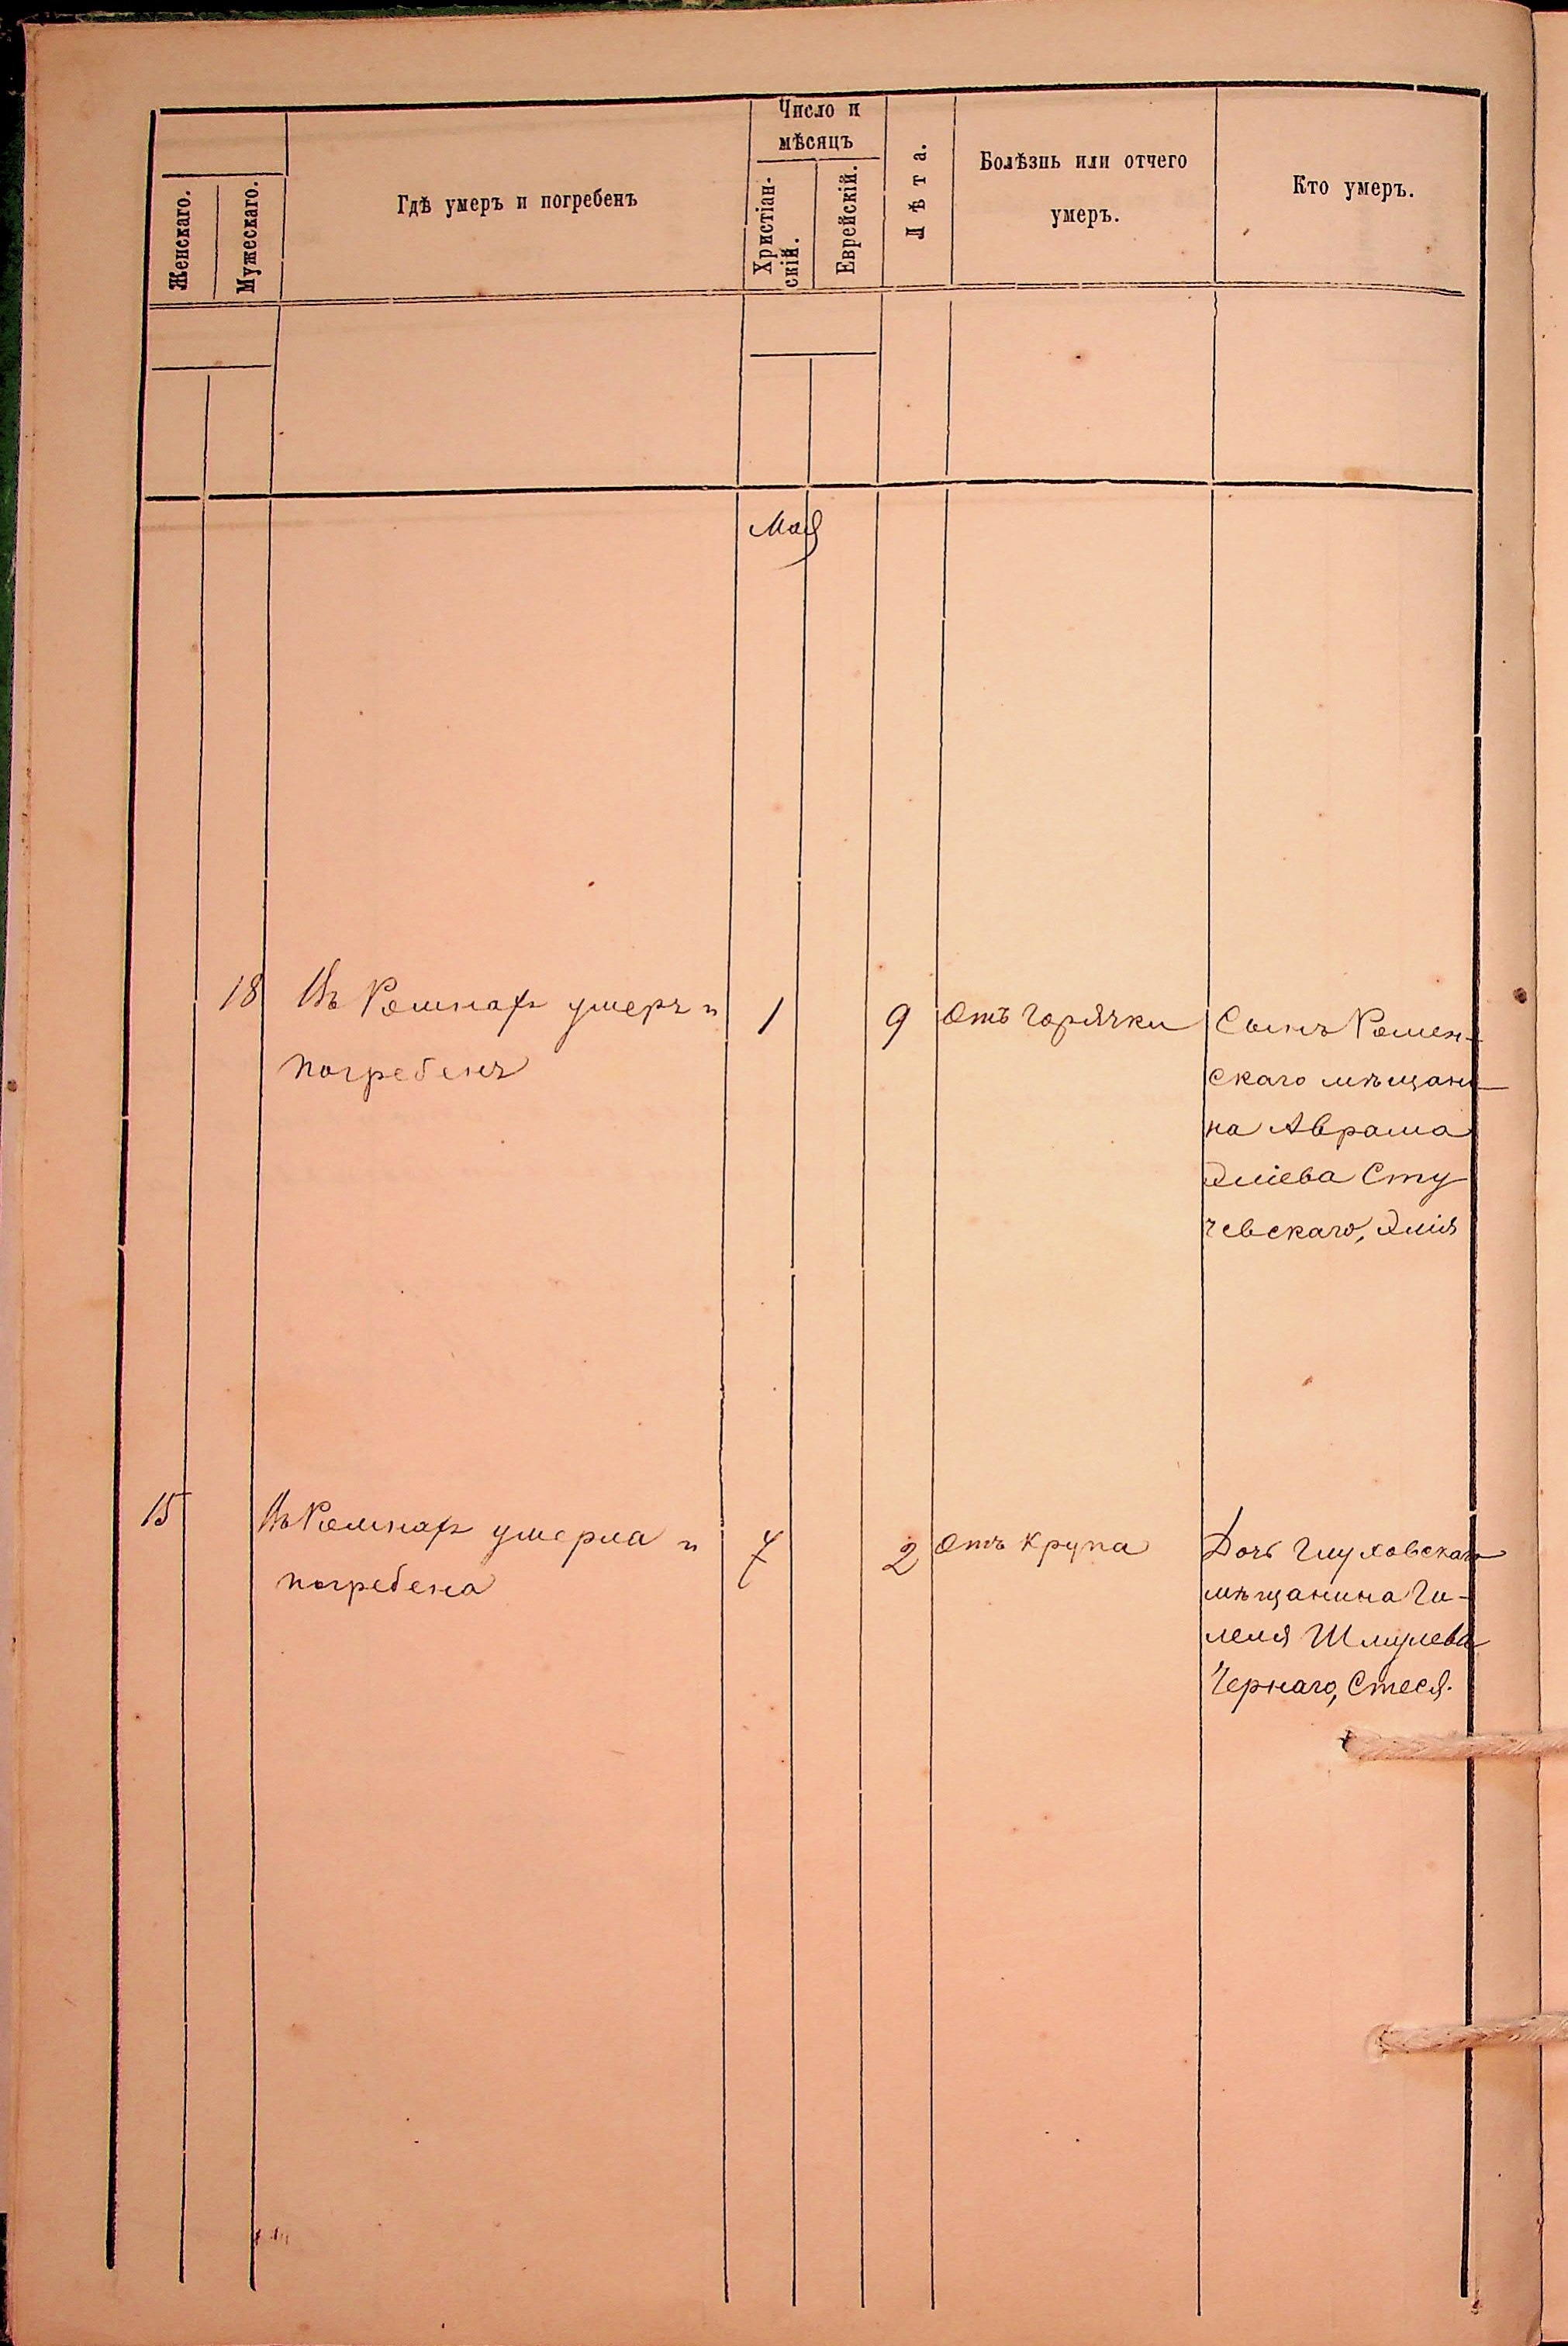 Женскаго.
Мужескаго.
Гдѣ умеръ и погребенъ
Число и
мѣсяцъ
Христіан-
скій.
Еврейскій.
Лѣта.
Болѣзнь или отчего
умеръ.
Кто умеръ.
Мая
18 Въ Ромнахъ умеръ и 1 9 Отъ горячки Сынъ Ромен-
погребенъ скаго мѣщани-
на Аврама
Эліева Сту
чевскаго, Элія
15 Въ Ромнахъ умерла и 7 2 Отъ крупа Дочь Глуховскаго
погребена мѣщанина Ги-
леля Шмулева
Чернаго, Стеся.